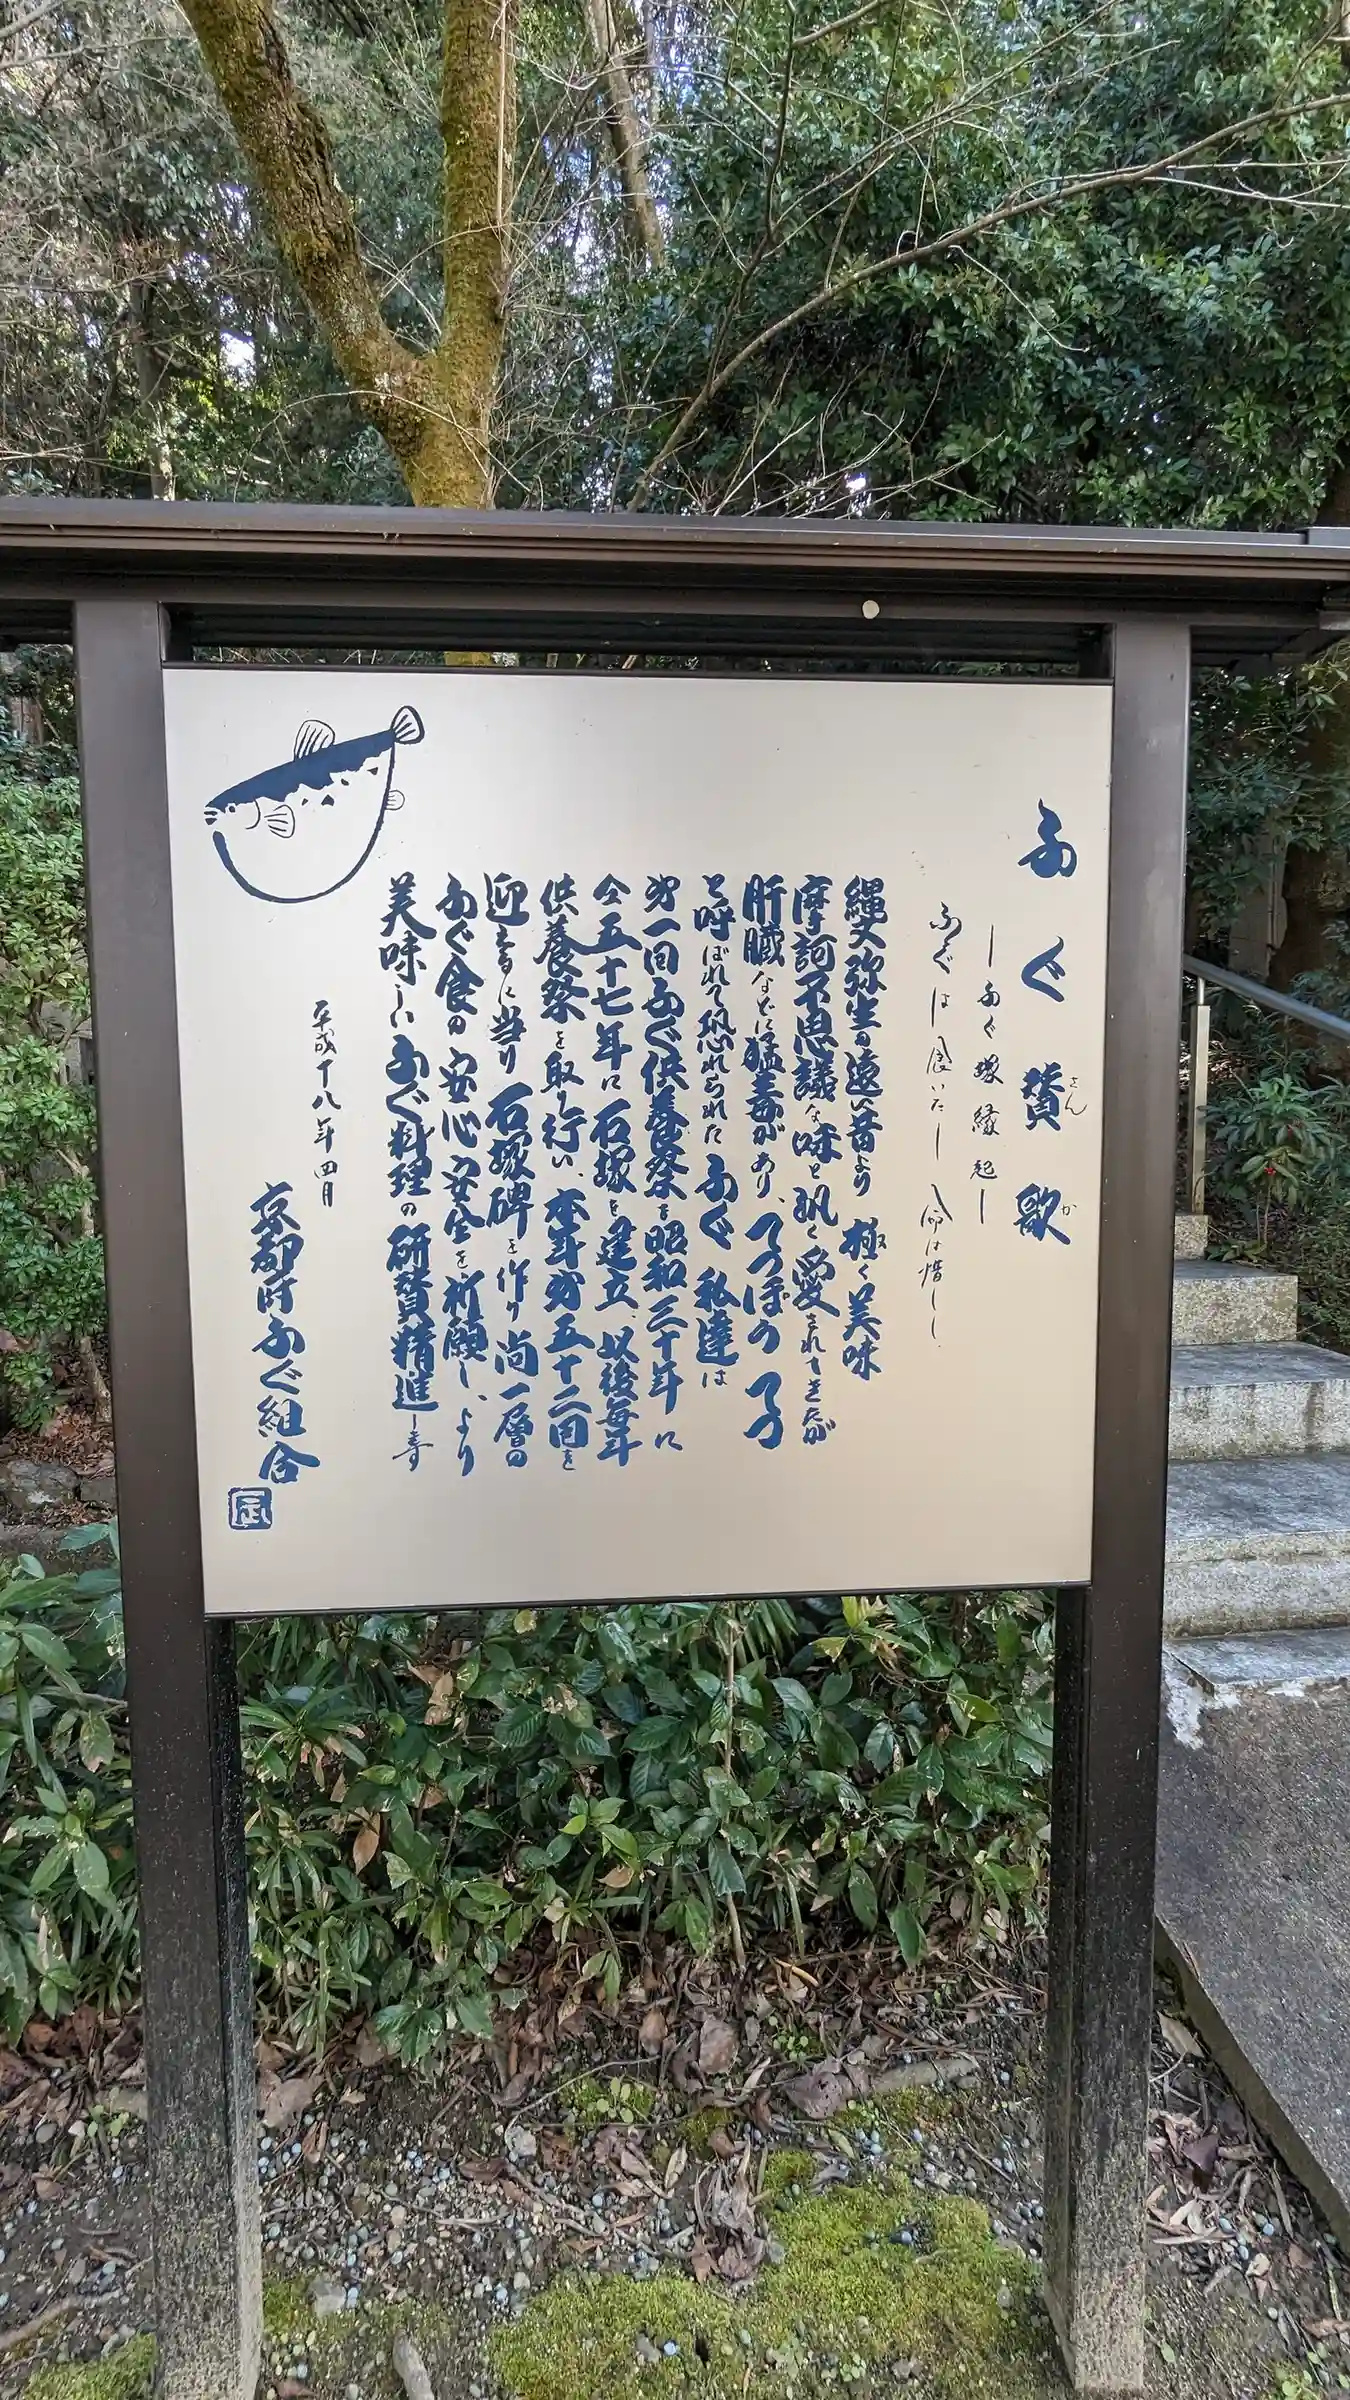 ふぐ賛歌
さんか
―ふぐ塚縁起―
ふぐは食いたし 命は惜しし
縄文弥生の遠い昔より 極く美味
摩訶不思議な味と飢く愛されてきたが
肝臓などに猛毒があり、てっぽう てつ
と呼ばれて恐れられた ふぐ 私達は
第一回ふぐ供養祭を昭和三十年に
仝五十七年に石塚を建立、以後毎年
供養祭を取り行い、本年第五十二回を
迎えるに当り 石塚碑を作り 尚一層の
ふぐ食の安心安全を祈願し、より
美味しいふぐ料理の研賛精進します
平成十八年四月
京都府ふぐ組合